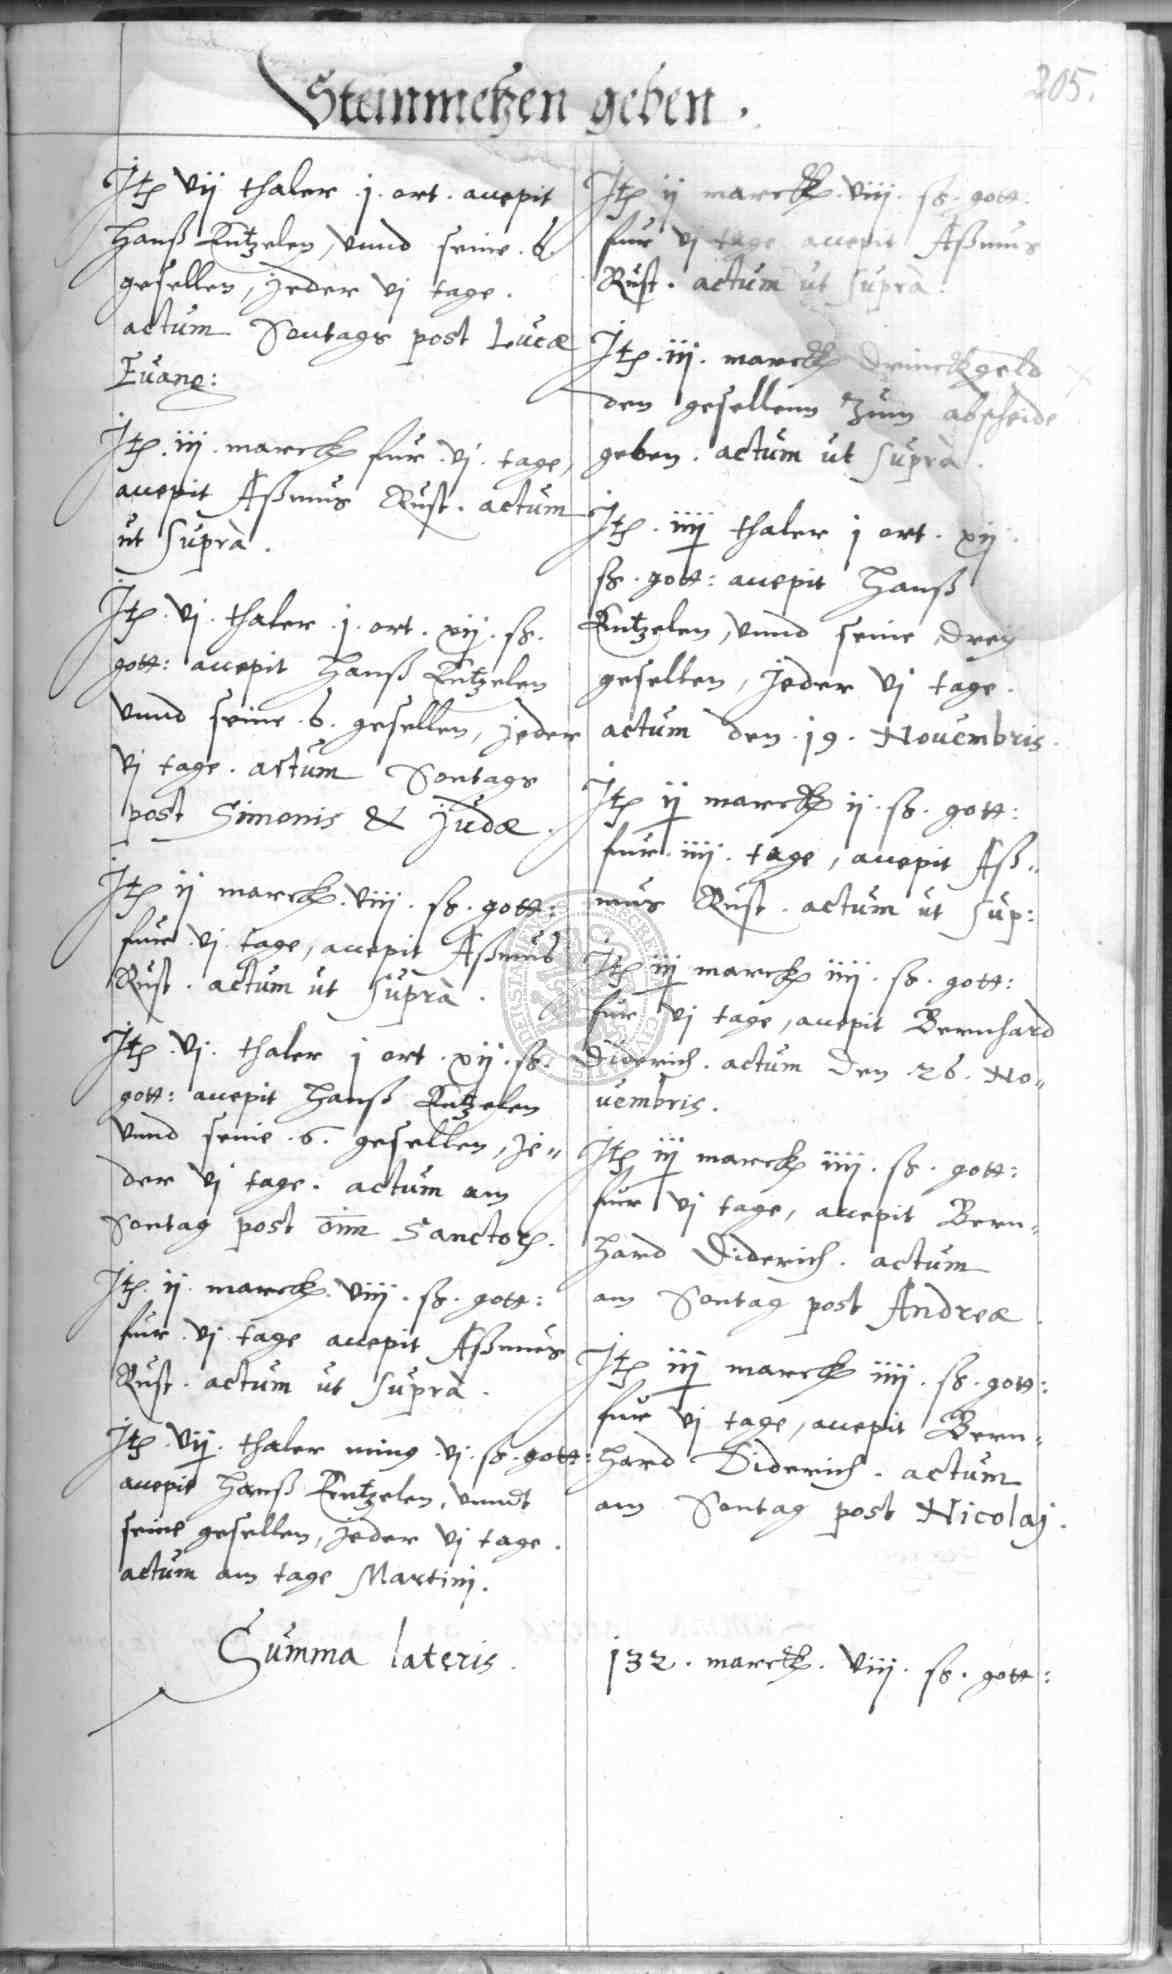 205.
Steinmetzen geben.
Itz vij thaler .j. ort. accepit
Hanß Kutzelen, vnnd seine .6.
gesellen, jeder vj tage.
actum Sontags post Lucæ
Euang:
Itz. iij. marck fur .vj. tage,
accepit Aßmus Rust. actum
ut suprà.
Itz. vj. thaler .j. ort. xij. ß.
gott: accepit Hanß Kutzelen
vnnd seine .6. gesellen, jeder
vj tage. actum Sontags
post Simonis & Judæ.
Itz ij marck. viij. ß. gott:
fur .vj. tage, accepit Aßmus
Rust. actum ut suprà.
Itz. vj. thaler j ort. xij. ß.
gott: accepit Hanß Kutzelen
vnnd seine .6. gesellen, je„
der vj tage. actum am
Sontag post oim Sanctor.
Itz. ij. marck. viij. ß. gott:
fur .vj. tage accepit Aßmus
Rust. actum ut suprà.
Itz. vij. thaler min9 .vj. ß. gott:
accepit Hanß Kutzelen, vnndt
seine gesellen, jeder vj tage.
actum am tage Martinj.
Itz ij marck. viij. ß. gott:
fur vj tage accepit Aßmus
Rust. actum ut suprà.
Itz. iij. marck drinckgeld
den gesellenn zum abscheide
geben. actum ut suprà.
Itz. iiij thaler j ort. xij.
ß. gott: accepit Hanß
Kutzelen, vnnd seine drey
gesellen, jeder vj tage.
actum den .19. Nouembris.
Itz ij marck ij. ß. gott:
fur. iiij. tage, accepit Aß„
mus Rust. actum ut sup:
Itz iij marck iiij. ß. gott:
fur vj tage, accepit Bernhard
Diderich. actum den .26. No„
uembris.
Itz iij marck iiij. ß. gott:
fur vj tage, accepit Bern„
hard Diderich. actum
am Sontag post Andreæ.
Itz iij marck iiij. ß. gott:
fur vj tage, accepit Bern„
hard Diderich. actum
am Sontag post Nicolaj.
Summa lateris. 132. marck. viij. ß. gott: